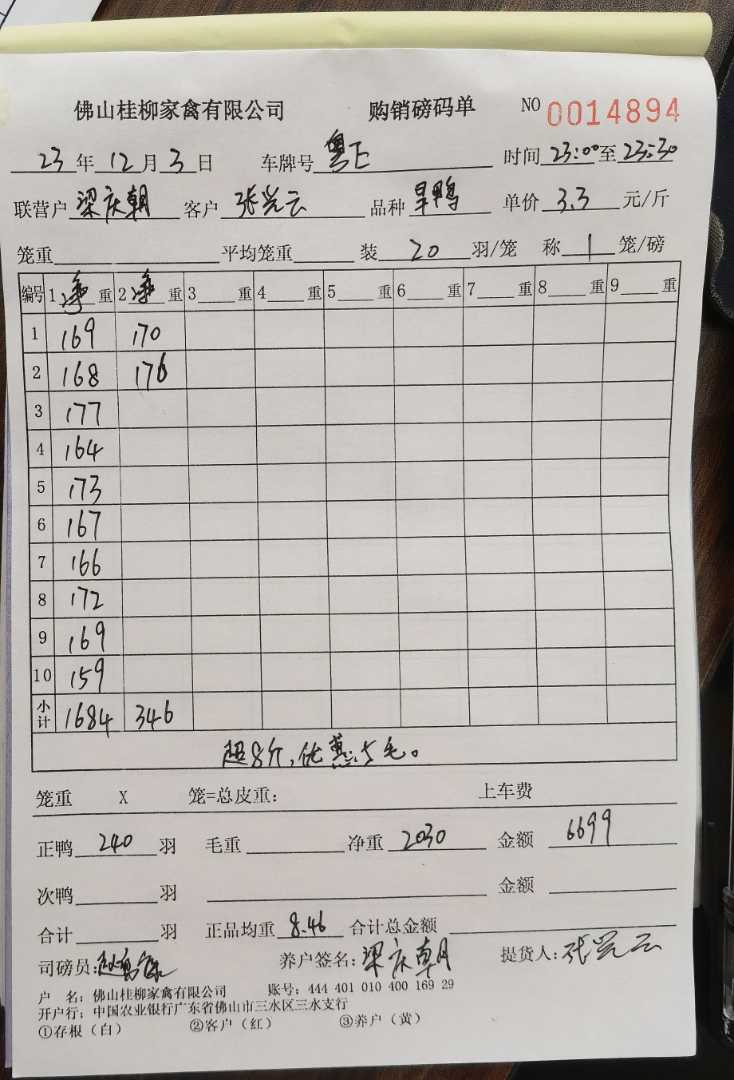 佛山桂柳家禽有限公司 购销磅码单 NO 0014894
23年12月3日 车牌号 粤E 时间 23:00至23:30
联营户 梁庆朝 客户 张兴云 品种 旱鸭 单价 3.3 元/斤
笼重 平均笼重 装 20 羽/笼 称 1 笼/磅
编号 1 净 重 2 净 重 3 重 4 重 5 重 6 重 7 重 8 重 9 重
1 169 170
2 168 176
3 177
4 164
5 173
6 167
7 166
8 172
9 169
10 159
小计 1684 346
超8斤,优惠:5毛。
笼重 X 笼=总皮重: 上车费
正鸭 240 羽 毛重 净重 2030 金额 6699
次鸭 羽 金额
合计 羽 正品均重 8.46 合计总金额
司磅员: 养户签名: 梁庆朝 提货人: 张兴云
户 名: 佛山桂柳家禽有限公司 账号: 444 401 010 400 169 29
开户行: 中国农业银行广东省佛山市三水区三水支行
①存根(白) ②客户(红) ③养户(黄)